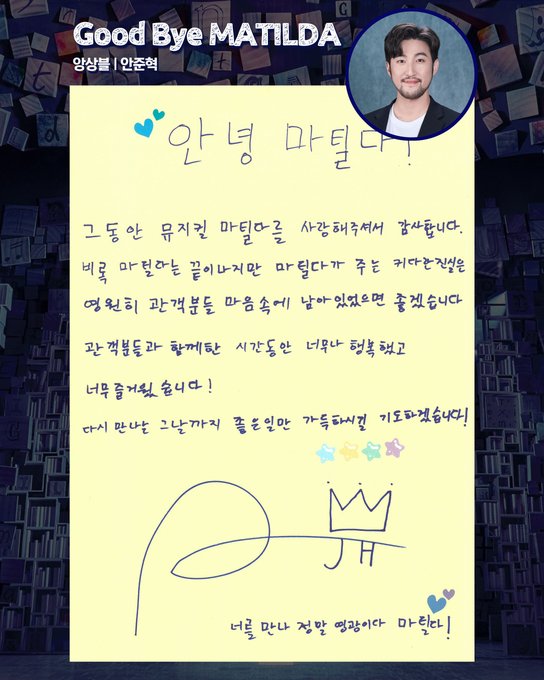 Good Bye MATILDA
앙상블 | 안준혁
안녕 마틸다!
그동안 뮤지컬 마틸다를 사랑해주셔서 감사합니다.
비록 마틸다는 끝이나지만 마틸다가 주는 커다란진실은
영원히 관객분들 마음속에 남아있었으면 좋겠습니다
관객분들과 함께한 시간동안 너무나 행복했고
너무 즐거웠습니다!
다시 만나는 그날까지 좋은일만 가득하시길 기도하겠습니다!
JH
너를 만나 정말 영광이다 마틸다!